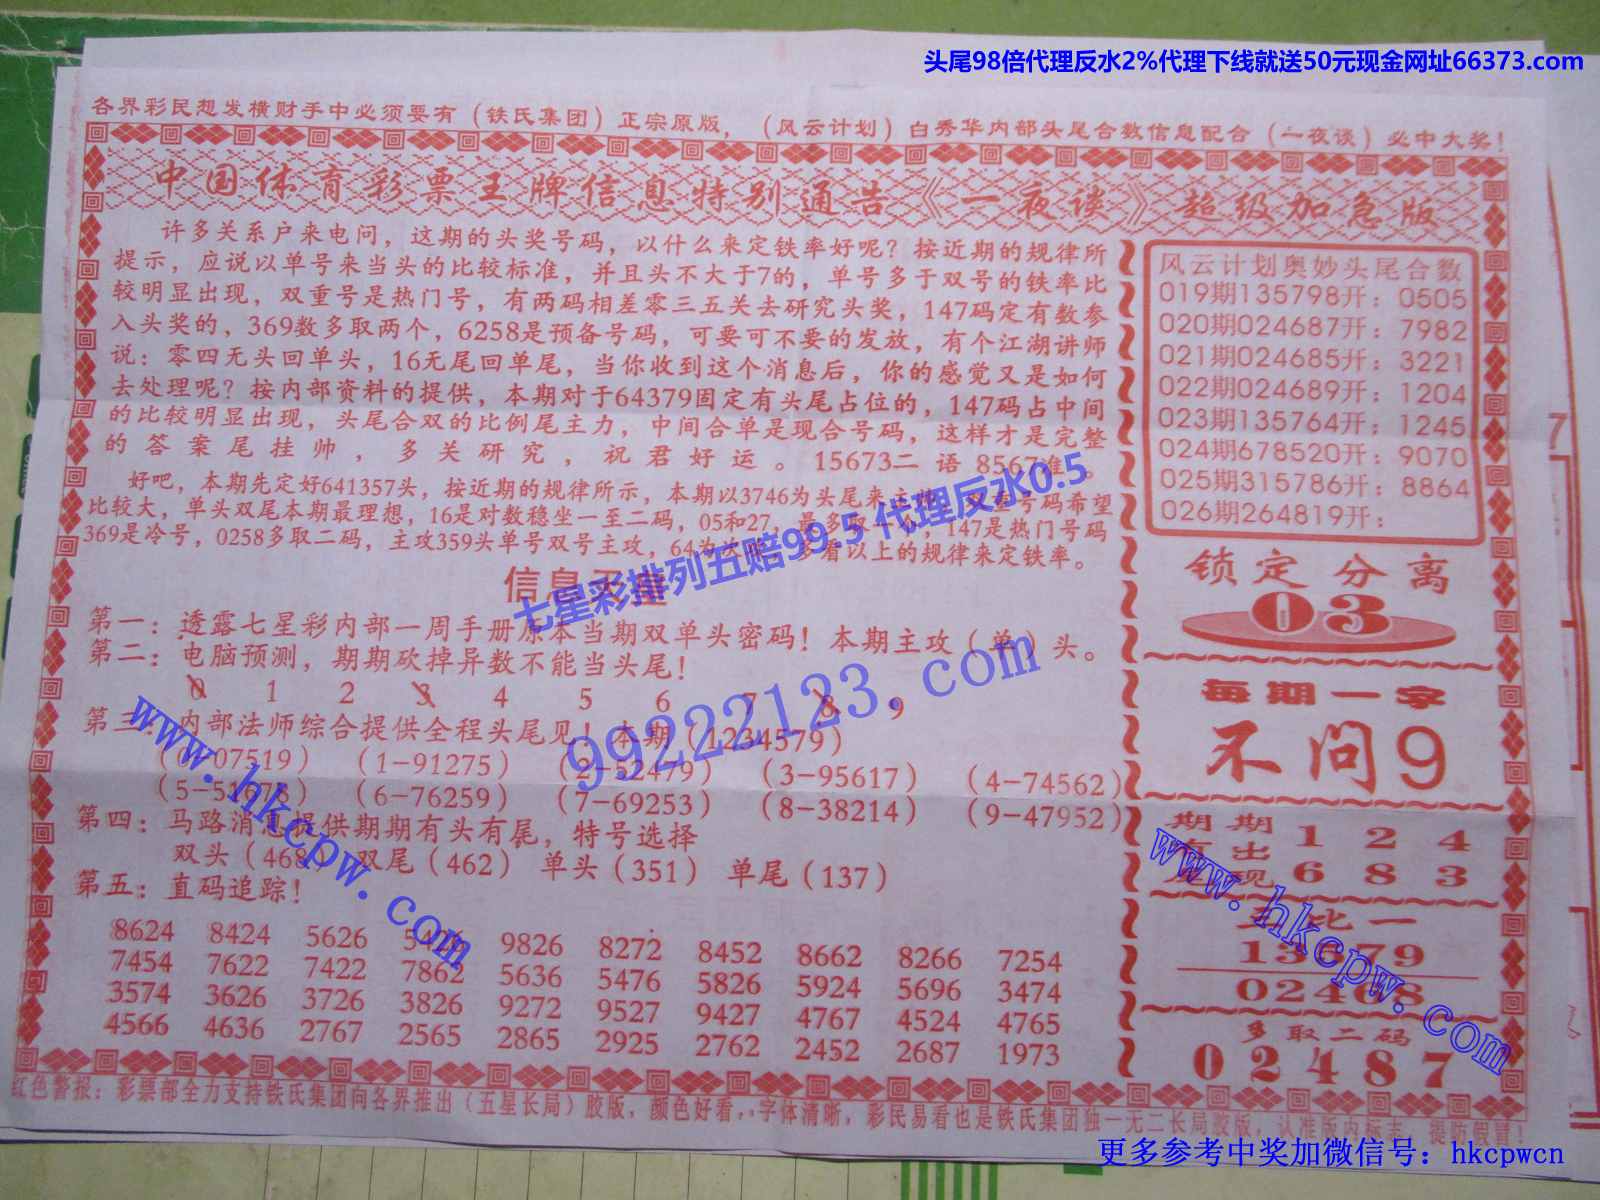 头尾98倍代理反水2%代理下线就送50元现金网址66373.com
各界彩民想发横财手中必须要有（铁氏集团）正宗原版，（风云计划）白秀华内部头尾合数信息配合（一夜谈）必中大奖！
中国体育彩票王牌信息特别通告《一夜谈》超级加急版
许多关系户来电问，这期的头奖号码，以什么来定铁率好呢？按近期的规律所
提示，应说以单号来当头的比较标准，并且头不大于7的，单号多于双号的铁率比
较明显出现，双重号是热门号，有两码相差零三五关去研究头奖，147码定有数参
入头奖的，369数多取两个，6258是预备号码，可要可不要的发放，有个江湖讲师
说：零四无头回单头，16无尾回单尾，当你收到这个消息后，你的感觉又是如何
去处理呢？按内部资料的提供，本期对于64379固定有头尾占位的，147码占中间
的比较明显出现，头尾合双的比例尾主力，中间合单是现合号码，这样才是完整
的答案尾挂帅，多关研究，祝君好运。15673二语8567准。
好吧，本期先定好641357头，按近期的规律所示，本期以3746为头尾来主 重号码希望
比较大，单头双尾本期最理想，16是对数稳坐一至二码，05和27，最多取一个，147是热门号码
369是冷号，0258多取二码，主攻359头单号双号主攻，64为次 多看以上的规律来定铁率。
信息天
七星彩排列五赔99.5 代理反水0.5
第一：透露七星彩内部一周手册原本当期双单头密码！本期主攻（单）头。
第二：电脑预测，期期砍掉异数不能当头尾！
0 1 2 3 4 5 6 7 8 9
第三：内部法师综合提供全程头尾见！本期（1234579）
（0-07519） （1-91275） （2-52479） （3-95617） （4-74562）
（5-51678） （6-76259） （7-69253） （8-38214） （9-47952）
第四：马路消息提供期期有头有尾，特号选择
双头（468） 双尾（462） 单头（351） 单尾（137）
第五：直码追踪！
8624 8424 5626 9826 8272 8452 8662 8266 7254
7454 7622 7422 7862 5636 5476 5826 5924 5696 3474
3574 3626 3726 3826 9272 9527 9427 4767 4524 4765
4566 4636 2767 2565 2865 2925 2762 2452 2687 1973
99222123.com
www.hkcpw.com
风云计划奥妙头尾合数
019期135798开：0505
020期024687开：7982
021期024685开：3221
022期024689开：1204
023期135764开：1245
024期678520开：9070
025期315786开：8864
026期264819开：
锁定分离
03
每期一字
不问9
期期 1 2 4
有出
现 6 8 3
比一
13579
02468
多取二码
02487
www.hkcpw.com
红色警报：彩票部全力支持铁氏集团向各界推出（五星长局）胶版，颜色好看，字体清晰，彩民易看也是铁氏集团独一无二长局胶版，认准版内标志，提防假冒！
更多参考中奖加微信号：hkcpwcn